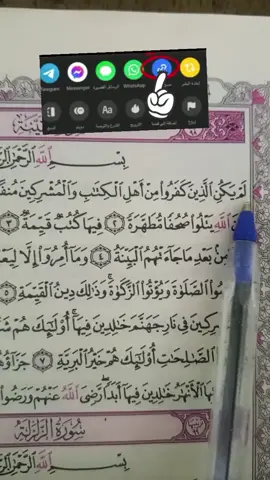 Telegram
Messenger
WhatsApp
بِسْـــمِ ٱللَّهِ ٱلرَّحْمَٰنِ
لَمْ يَكُنِ ٱلَّذِينَ كَفَرُوا۟ مِنْ أَهْلِ ٱلْكِتَٰبِ وَٱلْمُشْرِكِينَ
ٱللَّهِ يَتْلُوا۟ صُحُفًا مُّطَهَّرَةً ﴿٢﴾ فِيهَا كُتُبٌ قَيِّمَةٌ ﴿٣﴾
مِنۢ بَعْدِ مَا جَآءَتْهُمُ ٱلْبَيِّنَةُ ﴿٤﴾ وَمَآ أُمِرُوٓا۟ إِلَّا
ٱلصَّلَوٰةَ وَيُؤْتُوا۟ ٱلزَّكَوٰةَ ۚ وَذَٰلِكَ دِينُ ٱلْقَيِّمَةِ ﴿٥﴾
فِى نَارِ جَهَنَّمَ خَٰلِدِينَ فِيهَآ ۚ أُو۟لَٰٓئِكَ هُمْ
ٱلصَّٰلِحَٰتِ أُو۟لَٰٓئِكَ هُمْ خَيْرُ ٱلْبَرِيَّةِ ﴿٧﴾
ٱلْأَنْهَٰرُ خَٰلِدِينَ فِيهَآ أَبَدًا ۖ رَّضِىَ ٱللَّهُ عَنْهُمْ وَرَضُوا۟
سُورَةُ ٱلزَّلْزَلَةِ
بِسْـــمِ ٱللَّهِ ٱلرَّحْمَٰنِ